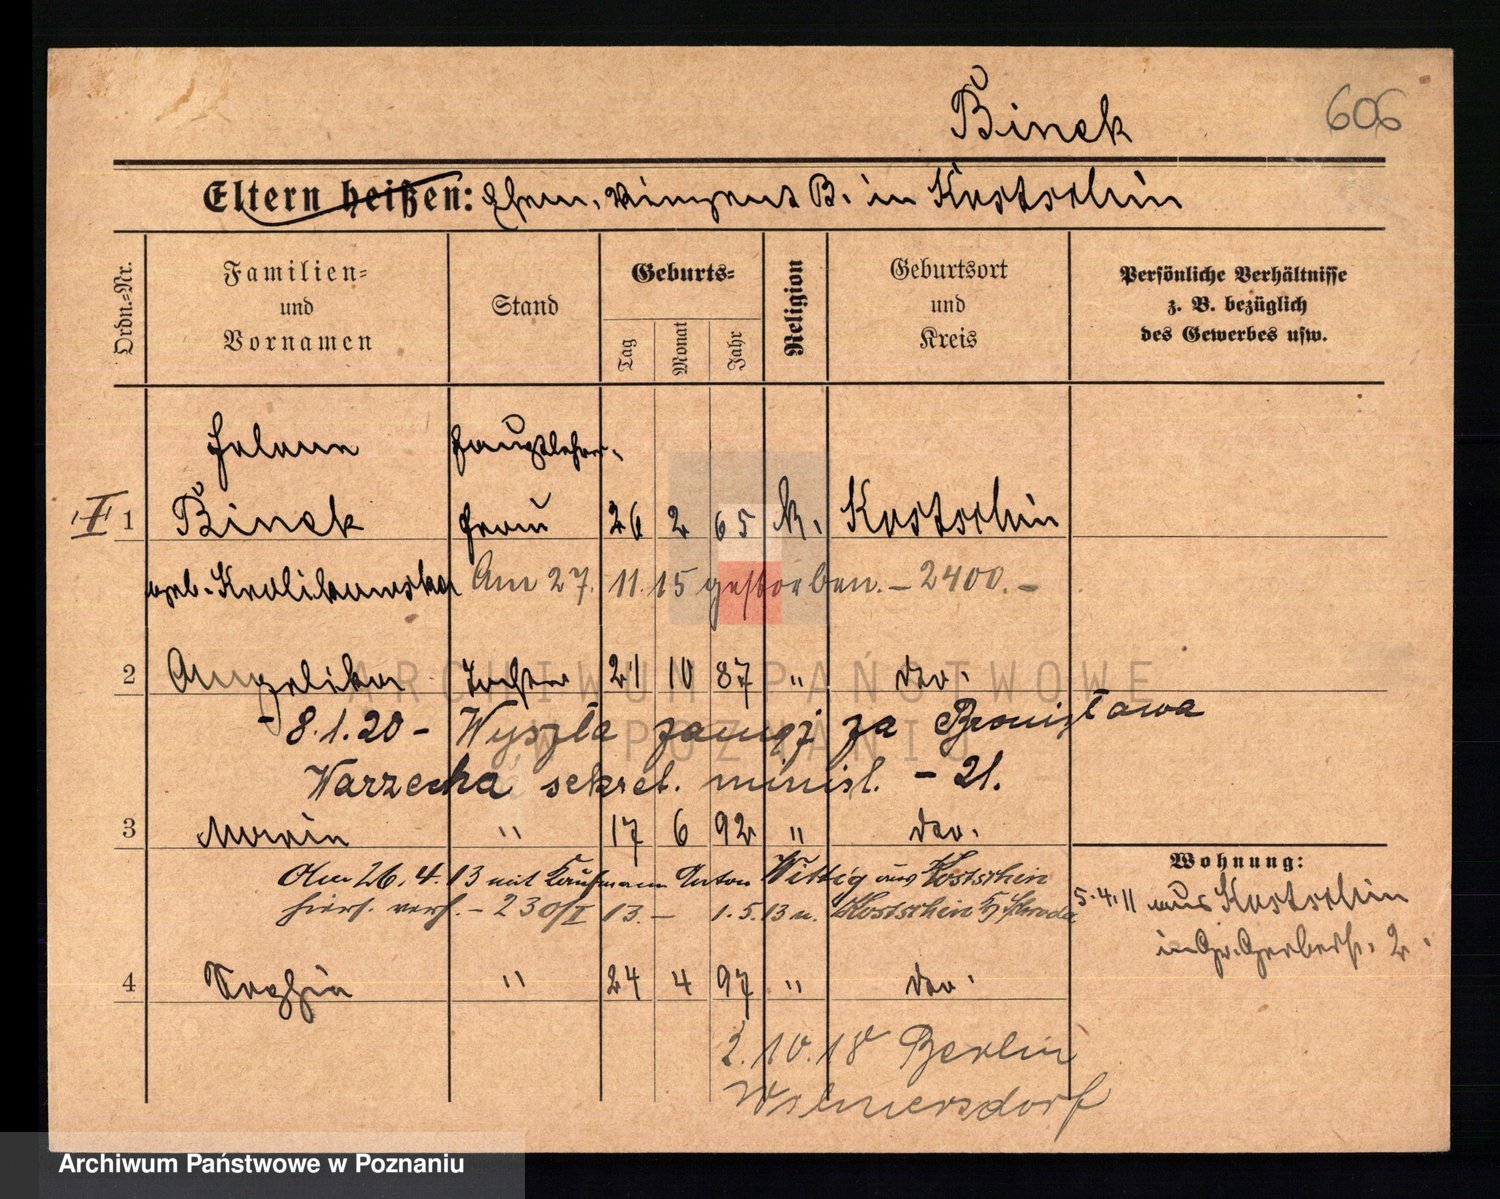 Binek
606
Eltern heißen: Ehem. Vinzent B. in Kostschin
Ordn.-Nr.
Familien- und Vornamen
Stand
Geburts-
Tag
Monat
Jahr
Religion
Geburtsort und Kreis
Persönliche Verhältnisse z. B. bezüglich des Gewerbes usw.
Helene Hauptlehrer-
I 1 Binek frau 26 2 65 k. Kostschin
geb. Krolikowska Am 27. 11. 15 gestorben. – 2400. –
2 Angelika Tochter 21 10 87 " do.
- 8.1.20 - Wyszła zamąż za Bronisława
Warzecha sekret. minist. - 21.
3 Maria " 17 6 92 " do.
Wohnung:
Am 26. 4. 13 mit Kaufmann Anton Wittig aus Kostschin
hier verh. - 230/I 13. - 1. 5. 13 n. Kostschin Schroda
5.4.11 aus Kostschin
in Gr. Gerberstr. 2.
4 Sophia " 24 4 97 " do.
2.10.18 Berlin
Wilmersdorf
ARCHIWUM PAŃSTWOWE
W POZNANIU
Archiwum Państwowe w Poznaniu